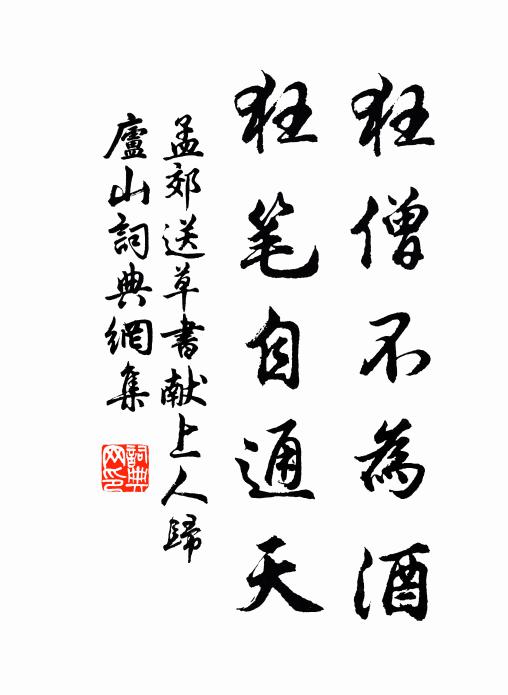 狂僧不為酒
狂笔自通天
孟郊送草書献上人歸
廬山詞典網集
詞典
网印